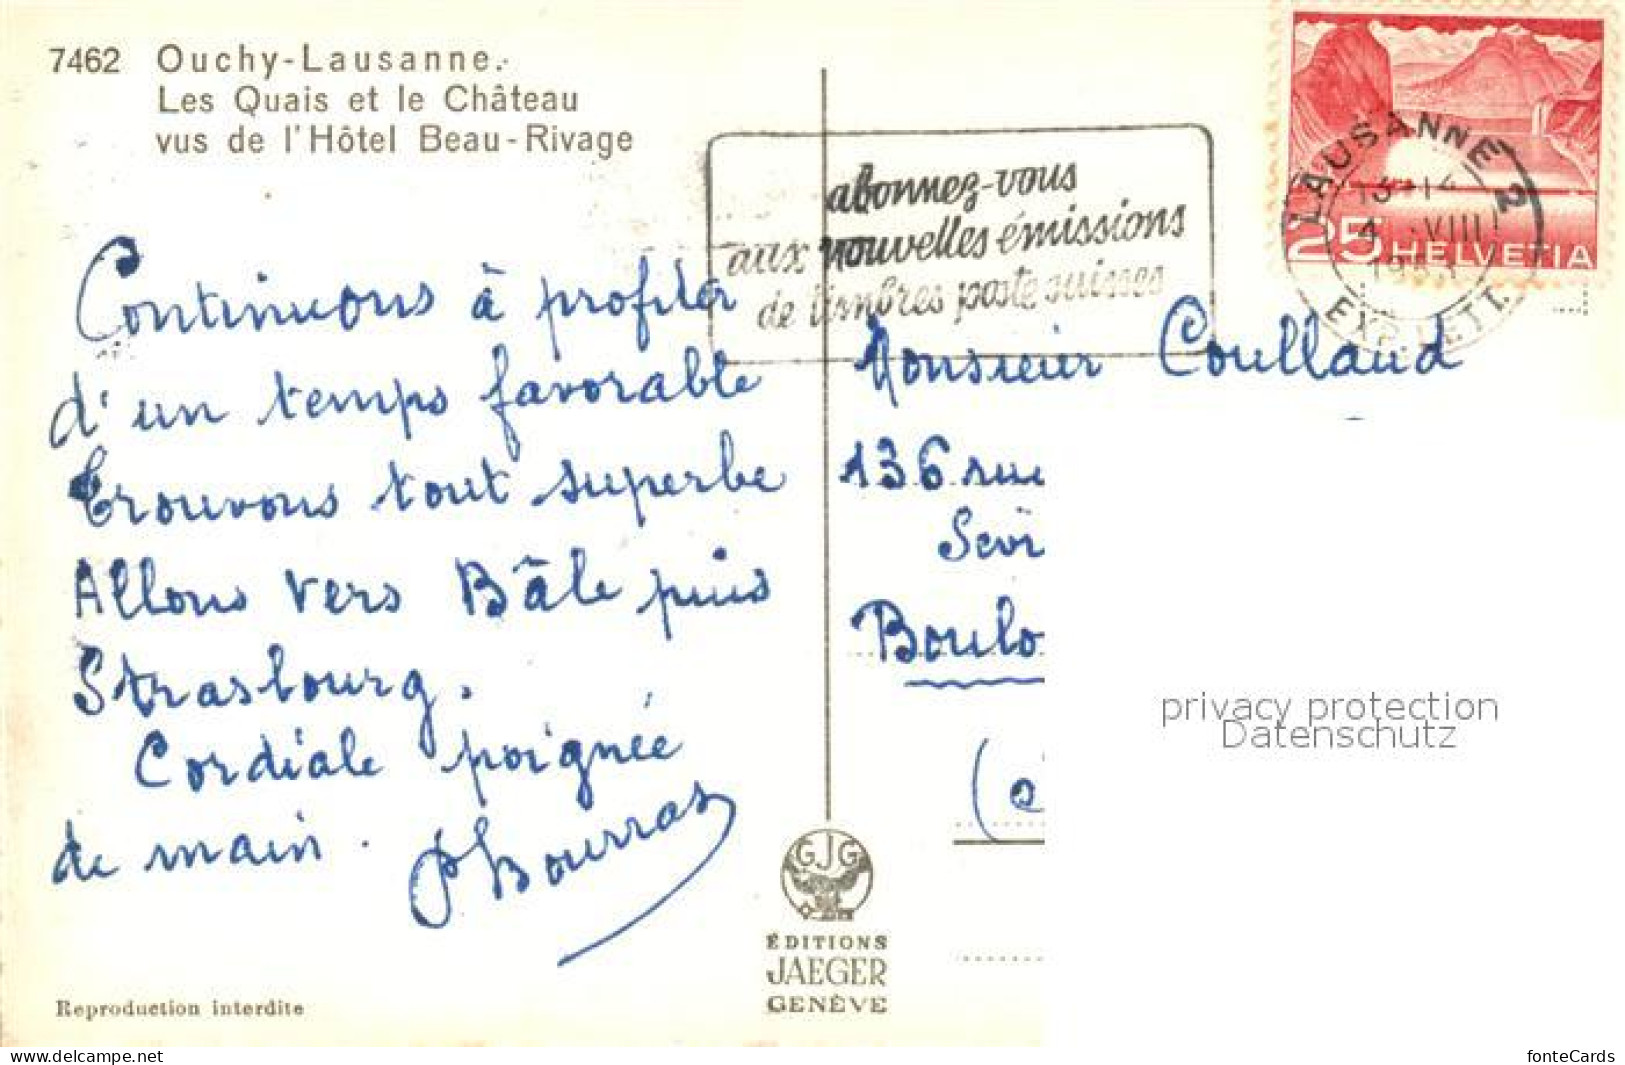 7462 Ouchy-Lausanne.
Les Quais et le Château
vus de l'Hôtel Beau-Rivage
abonnez-vous
aux nouvelles émissions
de timbres poste suisses
LAUSANNE 2
13-14
4. VIII
EXP. LETT.
25 HELVETIA
Continuons à profiter
d'un temps favorable
Trouvons tout superbe
Allons vers Bâle puis
Strasbourg.
Cordiale poignée
de main. PBourras
Monsieur Coullaud
136 rue
Sevr
Boulo
(
privacy protection
Datenschutz
GJG
ÉDITIONS
JAEGER
GENÈVE
Reproduction interdite
www.delcampe.net
fonteCards